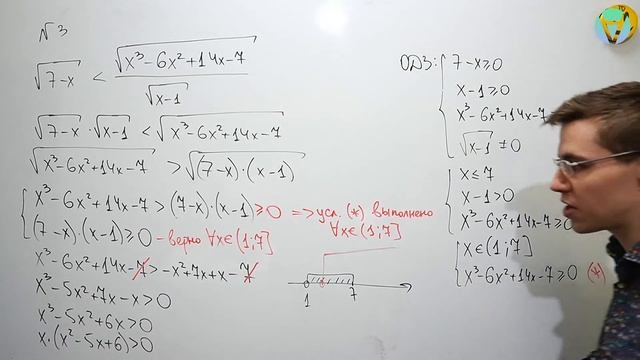 N 3
√(7-x) < √(x³-6x²+14x-7) / √(x-1)
√(7-x) · √(x-1) < √(x³-6x²+14x-7)
√(x³-6x²+14x-7) > √((7-x)·(x-1))
{ x³-6x²+14x-7 > (7-x)·(x-1) ≥ 0 => усл. (*) выполнено ∀x∈(1;7]
(7-x)·(x-1) ≥ 0 - верно ∀x∈(1;7]
x³-6x²+14x-7 > -x²+7x+x-7
x³-5x²+7x-x>0
x³-5x²+6x>0
x·(x²-5x+6)>0
1 7
ОДЗ: { 7-x≥0
x-1≥0
x³-6x²+14x-7
√(x-1) ≠ 0
{ x≤7
x-1>0
x³-6x²+14x-7≥0
{ x∈(1;7]
x³-6x²+14x-7≥0 (*)